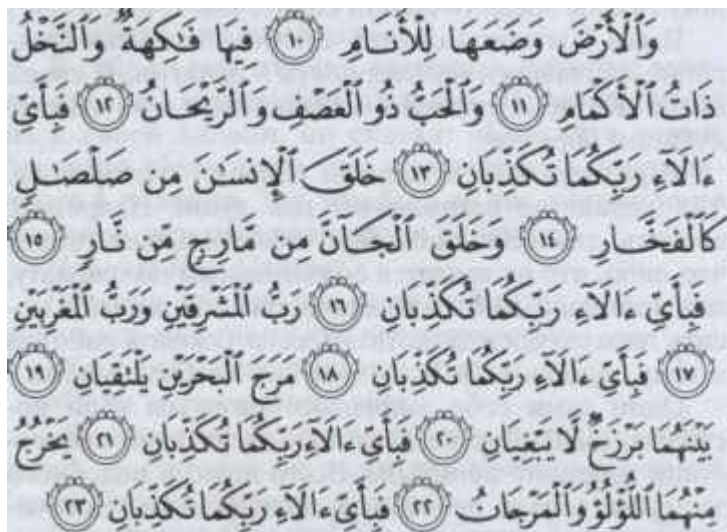 وَٱلْأَرْضَ وَضَعَهَا لِلْأَنَامِ ١٠ فِيهَا فَٰكِهَةٌ وَٱلنَّخْلُ
ذَاتُ ٱلْأَكْمَامِ ١١ وَٱلْحَبُّ ذُو ٱلْعَصْفِ وَٱلرَّيْحَانُ ١٢ فَبِأَيِّ
ءَالَآءِ رَبِّكُمَا تُكَذِّبَانِ ١٣ خَلَقَ ٱلْإِنسَٰنَ مِن صَلْصَٰلٍ
كَٱلْفَخَّارِ ١٤ وَخَلَقَ ٱلْجَآنَّ مِن مَّارِجٍ مِّن نَّارٍ ١٥
فَبِأَيِّ ءَالَآءِ رَبِّكُمَا تُكَذِّبَانِ ١٦ رَبُّ ٱلْمَشْرِقَيْنِ وَرَبُّ ٱلْمَغْرِبَيْنِ
١٧ فَبِأَيِّ ءَالَآءِ رَبِّكُمَا تُكَذِّبَانِ ١٨ مَرَجَ ٱلْبَحْرَيْنِ يَلْتَقِيَانِ ١٩
بَيْنَهُمَا بَرْزَخٌ لَّا يَبْغِيَانِ ٢٠ فَبِأَيِّ ءَالَآءِ رَبِّكُمَا تُكَذِّبَانِ ٢١ يَخْرُجُ
مِنْهُمَا ٱللُّؤْلُؤُ وَٱلْمَرْجَانُ ٢٢ فَبِأَيِّ ءَالَآءِ رَبِّكُمَا تُكَذِّبَانِ ٢٣